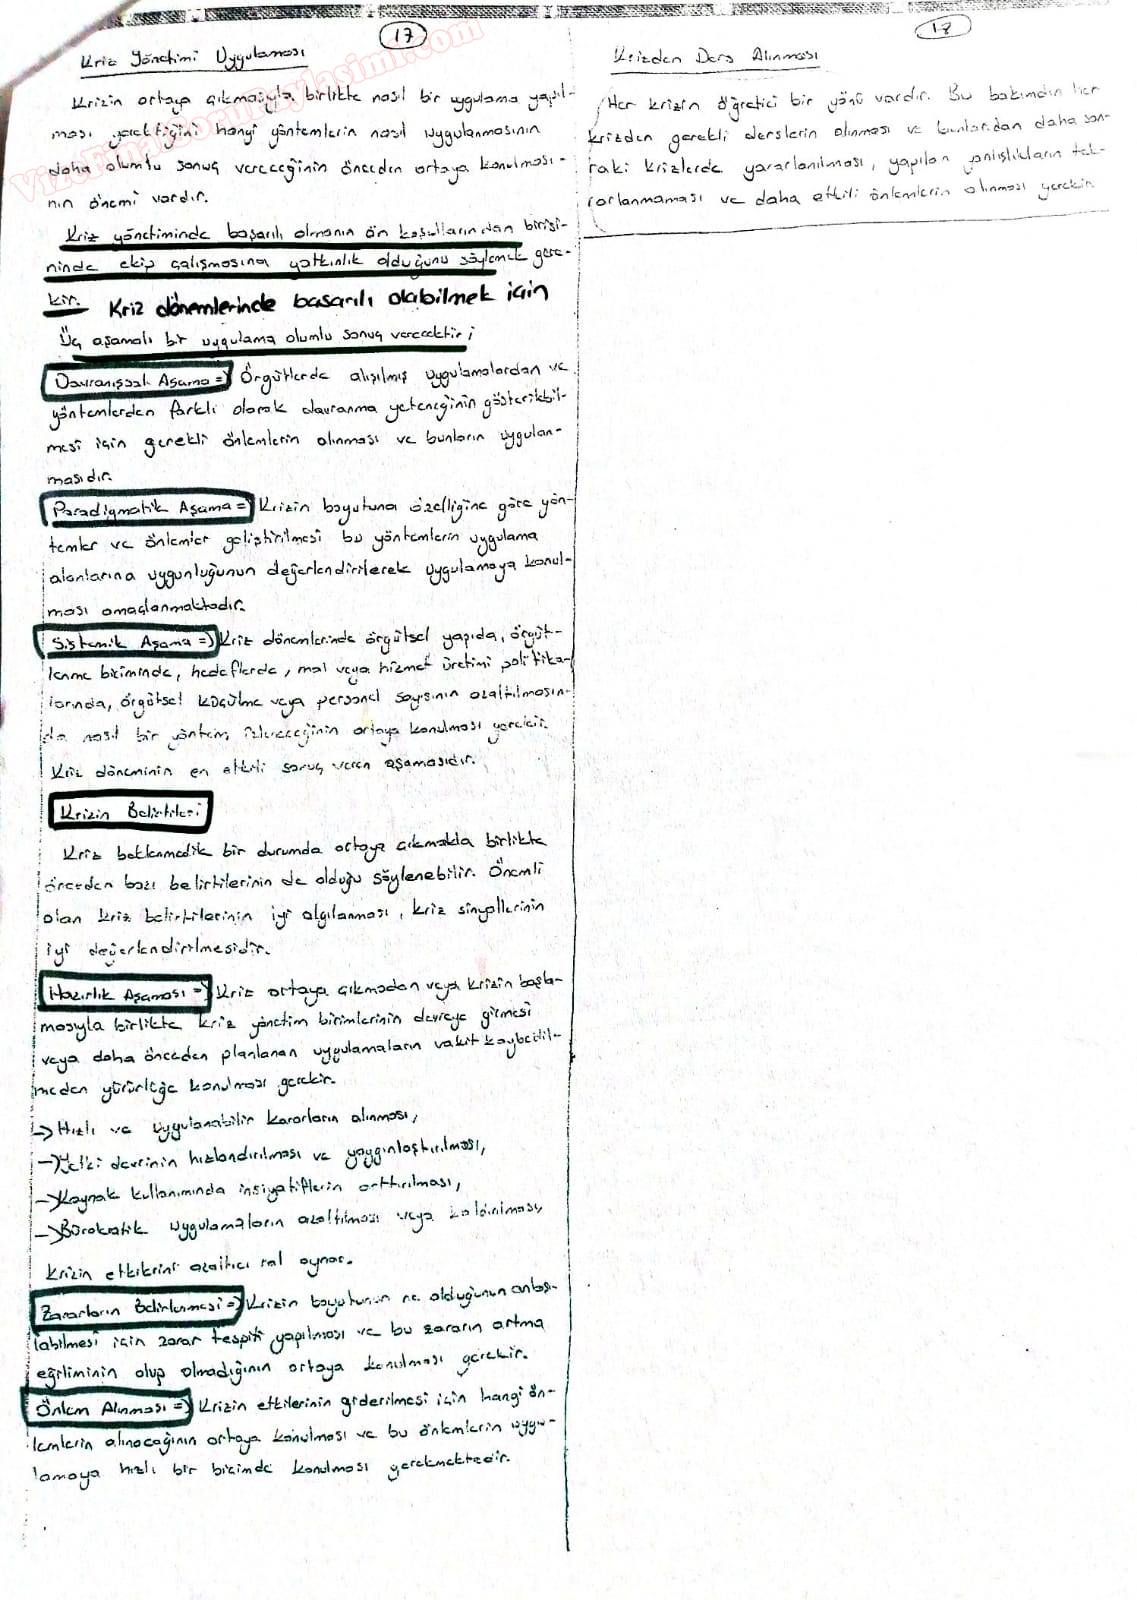 17
Kriz Yönetimi Uygulaması
Krizin ortaya çıkmasıyla birlikte nasıl bir uygulama yapıl-
ması gerektiğini hangi yöntemlerin nasıl uygulanmasının
daha olumlu sonuç vereceğinin önceden ortaya konulması-
nın önemi vardır.
Kriz yönetiminde başarılı olmanın ön koşullarından birisi-
ninde ekip çalışmasına yatkınlık olduğunu söylemek gere-
kir. Kriz dönemlerinde basarılı olabilmek için
Üç aşamalı bir uygulama olumlu sonuç verecektir;
Davranışsal Aşama => Örgütlerde alışılmış uygulamalardan ve
yöntemlerden farklı olarak davranma yeteneğinin gösterilebil-
mesi için gerekli önlemlerin alınması ve bunların uygulan-
masıdır.
Paradigmatik Aşama => Krizin boyutuna özelliğine göre yön-
temler ve önlemler geliştirilmesi bu yöntemlerin uygulama
alanlarına uygunluğunun değerlendirilerek uygulamaya konul-
ması amaçlanmaktadır.
Sistemik Aşama => Kriz dönemlerinde örgütsel yapıda, örgüt-
lenme biçiminde, hedeflerde, mal veya hizmet üretimi politika-
larında, örgütsel küçülme veya personel sayısının azaltılmasın-
da nasıl bir yöntem izleneceğinin ortaya konulması gerekir.
Kriz döneminin en etkili sonuç veren aşamasıdır.
Krizin Belirtileri
Kriz beklenmedik bir durumda ortaya çıkmakla birlikte
önceden bazı belirtilerinin de olduğu söylenebilir. Önemli
olan kriz belirtilerinin iyi algılanması, kriz sinyallerinin
iyi değerlendirilmesidir.
Hazırlık Aşaması => Kriz ortaya çıkmadan veya krizin başla-
masıyla birlikte kriz yönetim birimlerinin devreye girmesi
veya daha önceden planlanan uygulamaların vakit kaybedil-
meden yürürlüğe konulması gerekir.
-> Hızlı ve uygulanabilir kararların alınması,
-> Yetki devrinin hızlandırılması ve yaygınlaştırılması,
-> Kaynak kullanımında insiyatiflerin arttırılması,
-> Bürokratik uygulamaların azaltılması veya kaldırılması,
Krizin etkilerini azaltıcı rol oynar.
Zararların Belirlenmesi => Krizin boyutunun ne olduğunun anlaşı-
labilmesi için zarar tespiti yapılması ve bu zararın artma
eğiliminin olup olmadığının ortaya konulması gerekir.
Önlem Alınması => Krizin etkilerinin giderilmesi için hangi ön-
lemlerin alınacağının ortaya konulması ve bu önlemlerin uygu-
lamaya hızlı bir biçimde konulması gerekmektedir.
17
Krizden Ders Alınması
Her krizin öğretici bir yönü vardır. Bu bakımdan her
krizden gerekli derslerin alınması ve bunlardan daha son-
raki krizlerde yararlanılması, yapılan yanlışlıkların tek-
rarlanmaması ve daha etkili önlemlerin alınması gerekir.
VizeFinalSoruPaylasimi.com